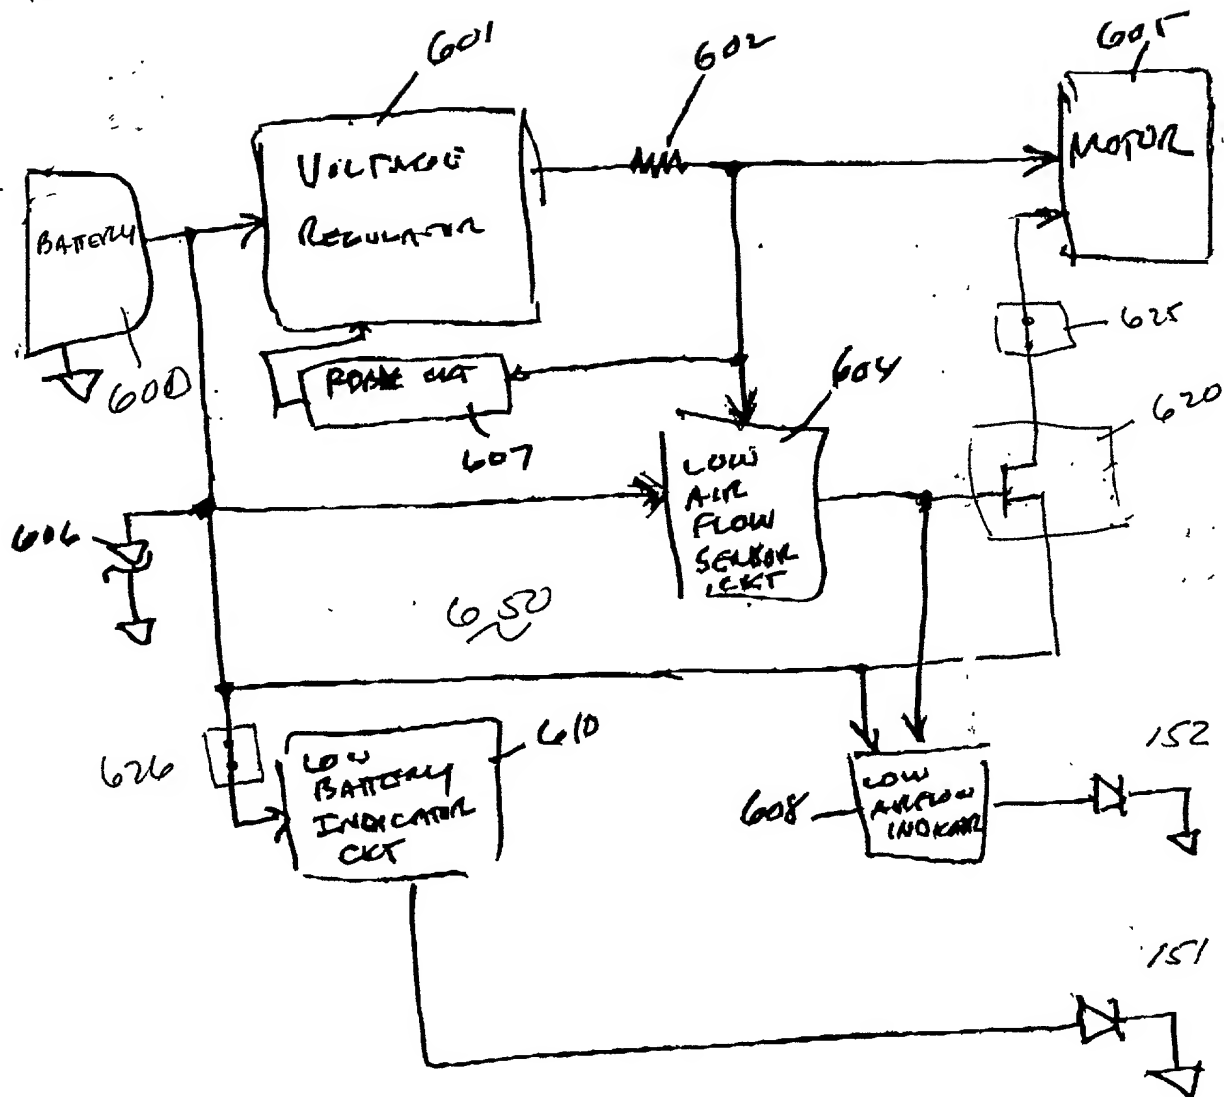 601
602
605
VOLTAGE
REGULATOR
MOTOR
BATTERY
600
625
CKT
607
604
620
LOW
AIR
FLOW
SENSOR
CKT
606
650
626
LOW
BATTERY
INDICATOR
CKT
610
608
LOW
AIRFLOW
INDICATOR
152
151